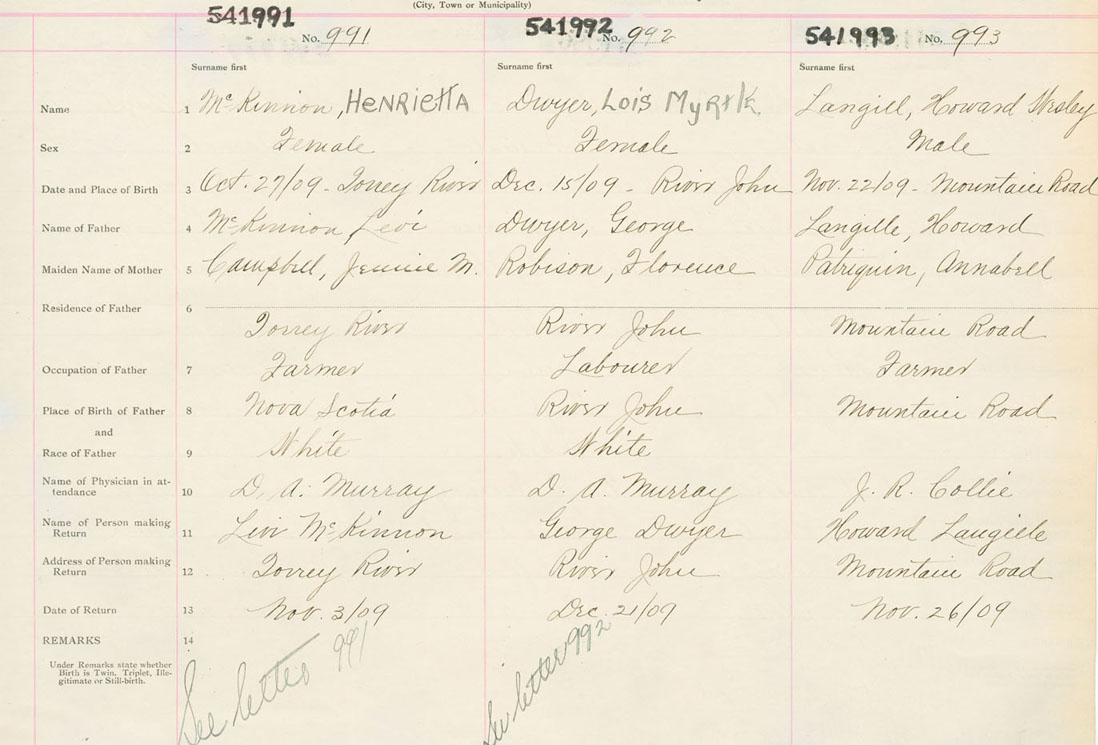 (City, Town or Municipality)
541991 No. 991 541992 No. 992 541993 No. 993
Surname first Surname first Surname first
Name 1 McKinnon, HENRIEttA Dwyer, Lois Myrtle Langill, Howard Wesley
Sex 2 Female Female Male
Date and Place of Birth 3 Oct. 27/09 - Toney River Dec. 15/09 - River John Nov. 22/09 - Mountain Road
Name of Father 4 McKinnon, Levi Dwyer, George Langille, Howard
Maiden Name of Mother 5 Campbell, Jennie M. Robison, Florence Patriquin, Annabell
Residence of Father 6
Torrey River River John Mountain Road
Occupation of Father 7 Farmer Labourer Farmer
Place of Birth of Father 8 Nova Scotia River John Mountain Road
and
Race of Father 9 White White
Name of Physician in at-
tendance 10 D. A. Murray D. A. Murray J. R. Collie
Name of Person making
Return 11 Levi McKinnon George Dwyer Howard Langille
Address of Person making
Return 12 Torrey River River John Mountain Road
Date of Return 13 Nov. 3/09 Dec. 21/09 Nov. 26/09
REMARKS 14
Under Remarks state whether
Birth is Twin. Triplet, Ille-
gitimate or Still-birth.
See letter 991
See letter 992